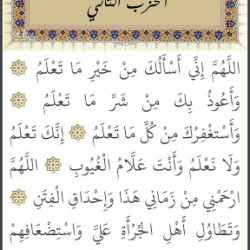 الحزب الثاني
اللَّهُمَّ إِنِّي أَسْأَلُكَ مِنْ خَيْرِ مَا تَعْلَمُ
وَأَعُوذُ بِكَ مِنْ شَرِّ مَا تَعْلَمُ
وَأَسْتَغْفِرُكَ مِنْ كُلِّ مَا تَعْلَمُ إِنَّكَ تَعْلَمُ
وَلَا نَعْلَمُ وَأَنْتَ عَلَّامُ الْغُيُوبِ اللَّهُمَّ
ارْحَمْنِي مِنْ زَمَانِي هَذَا وَإِحْدَاقِ الْفِتَنِ
وَتَطَاوُلِ أَهْلِ الْجُرْأَةِ عَلَيَّ وَاسْتِضْعَافِهِمْ